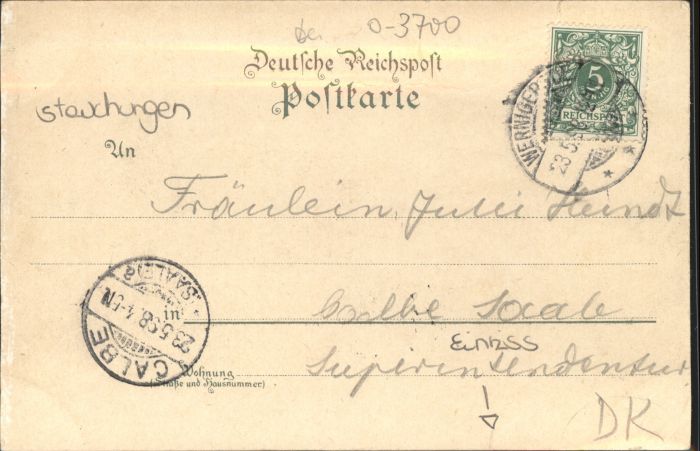 0-3700
Deutsche Reichspost
Postkarte
5
REICHSPOST
WERNIGER
23.5
stauchungen
An
Fräulein Julie Heindt
in Calbe Saale
CALBE
(SAALE) 2
23.5.98.4-5N.
Einriss
Wohnung
(Straße und Hausnummer)
Superintendentur
DK